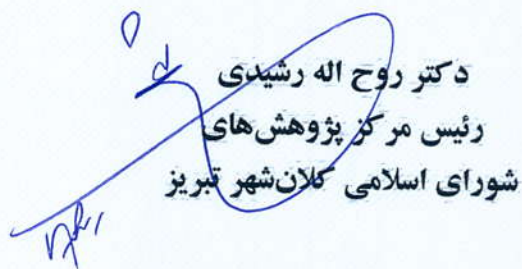 دکتر روح اله رشیدی
رئیس مرکز پژوهش‌های
شورای اسلامی کلان‌شهر تبریز